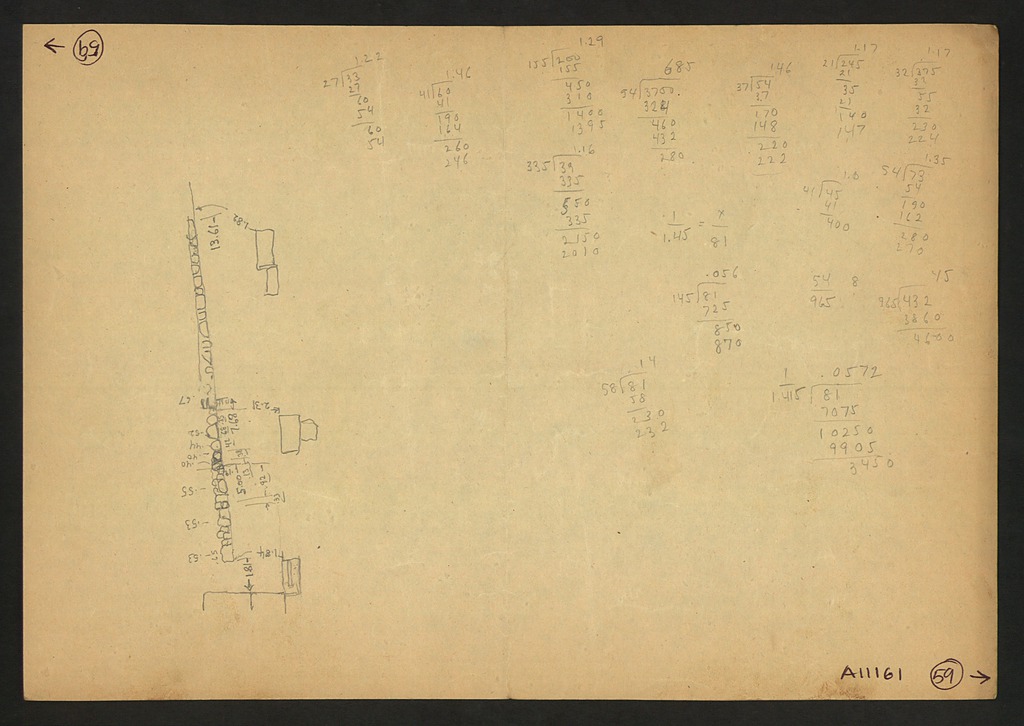 ← 59
1.22
27 33
27
60
54
60
54
1.46
41 60
41
190
164
260
246
1.29
155 200
155
450
310
1400
1395
1.16
335 39
335
550
335
2150
2010
685
54 3700.
324
460
432
280
146
37 54
37
170
148
220
222
1.17
21 245
21
35
21
140
147
1.17
32 375
32
55
32
230
224
1.0
41 45
41
400
1.35
54 73
54
190
162
280
270
1/1.45 = x/81
.056
145 81
725
850
870
54/965
8
45
965 432
3860
4600
.14
58 81
58
230
232
1
1.415
.0572
81
7075
10250
9905
3450
1.82
13.61
.67
2.31
7.68
.52
.44
.40
.40
5.00
.92
.55
.53
.53
1.84
1.81
A11161 59 →